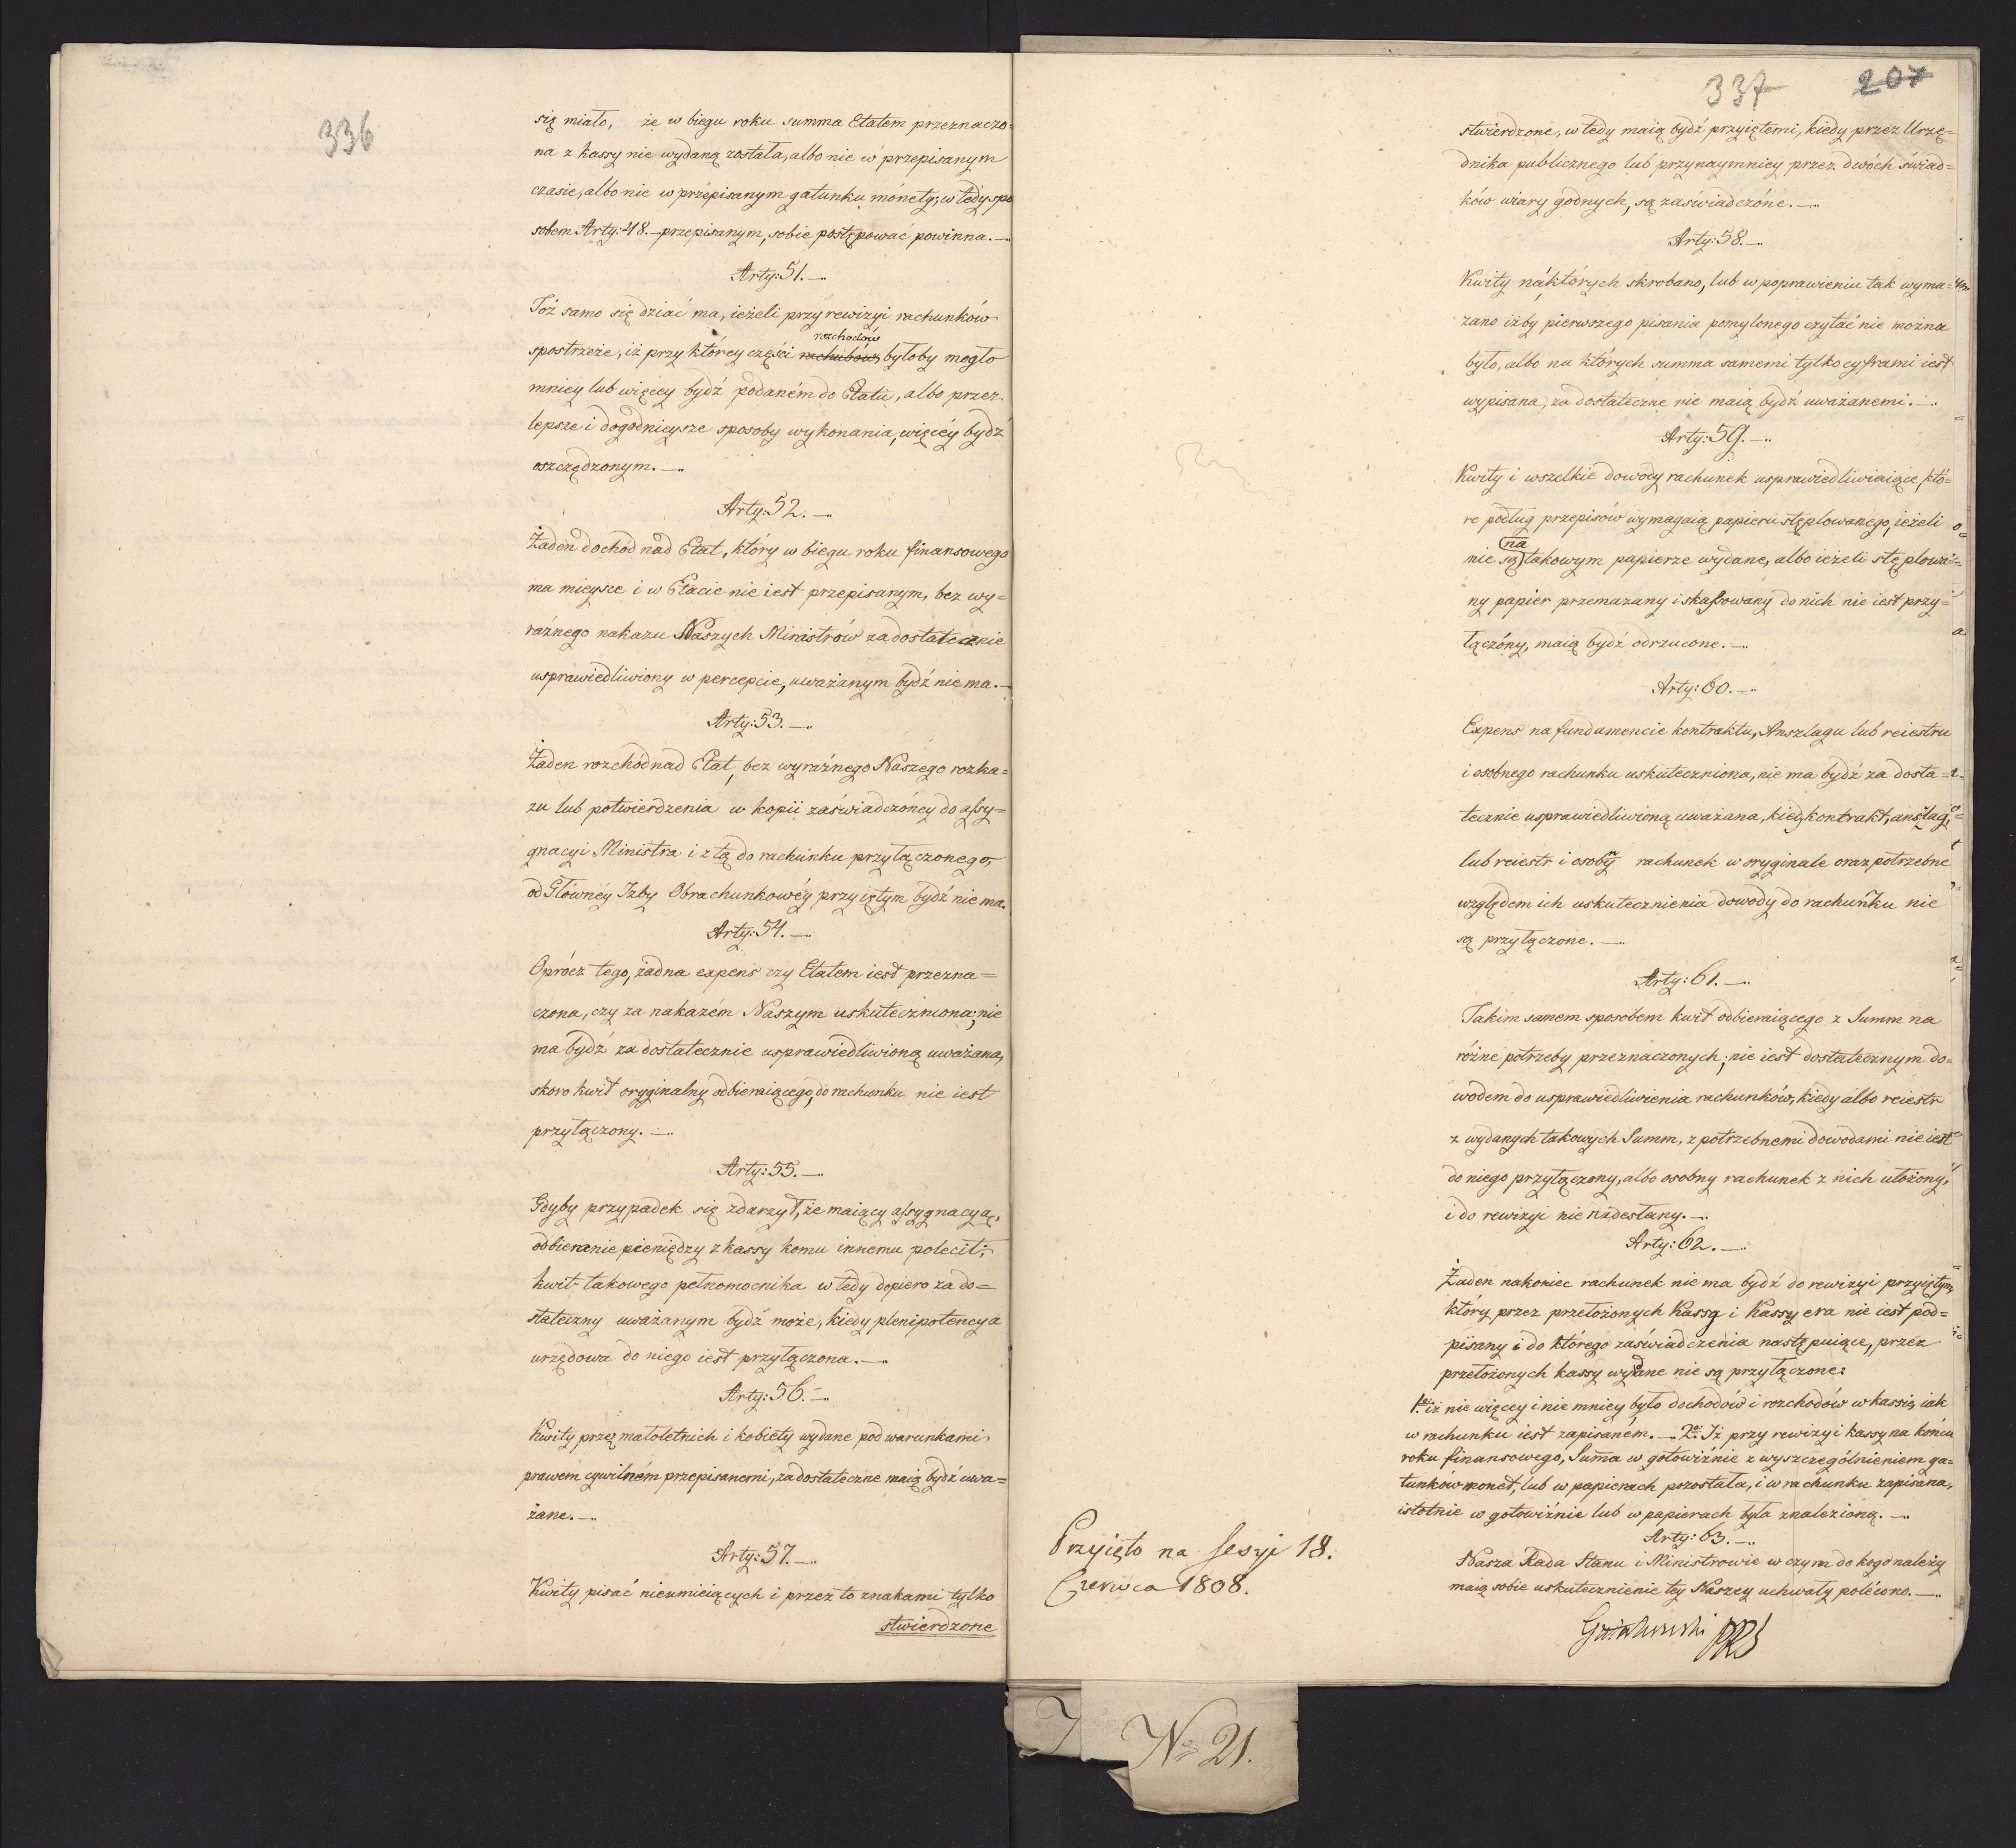 336
się miało, że w biegu roku summa Etatem przeznaczo=
na z kassy nie wydaną została, albo nie w przepisanym
czasie, albo nie w przepisanym gatunku monety; wtedy spo
sobem Arty: 48. przepisanym, sobie postępować powinna.—
Arty: 51.—
Toż samo się dziać ma, ieżeli przy rewizyi rachunków
rozchodów
spostrzeże, iż przy którey części rachubów, byłoby mogło
mniey lub więcey bydź podaném do Etatu, albo przez
lepsze i dogodnieysze sposoby wykonania, więcéy bydź
oszczędzonym.—
Arty: 52.—
Żaden dochod nad Etat, który w biegu roku finansowego
ma mieysce i w Etacie nie iest przepisanym, bez wy=
raźnego nakazu Naszych Ministrów za dostatecznie
usprawiedliwiony w percepcie, uważanym bydź nie ma.—
Arty: 53.—
Żaden rozchód nad Etat, bez wyraźnego Naszego rozka=
zu lub potwierdzenia w kopii zaświadczóney do assy=
gnacyi Ministra i z tą do rachunku przyłączonego,
od Główney Izby Obrachunkowéy przyiętym bydź nie ma.
Arty: 54.—
Oprócz tego, żadna expens czy Etatem iest przezna=
czona, czy za nakazém Naszym uskuteczniona; nie
ma bydź za dostatecznie usprawiedliwioną uważana,
skoro kwit oryginalny odbieraiącego, do rachunku nie iest
przyłączony.—
Arty: 55.—
Gdyby przypadek się zdarzył, że maiący assygnacyą,
odbieranie pieniędzy z kassy komu innemu polecił;
kwit takowego pełnomocnika wtedy dopiero za do=
stateczny uważanym bydź może, kiedy plenipotencya
urzędowa do niego iest przyłączona.—
Arty: 56.—
Kwity przez małoletnich i kobiety wydane pod warunkami
prawem cywilném przepisanemi, za dostateczne maią bydź uwa=
żane.—
Arty: 57.—
Kwity pisać nieumieiących i przez to znakami tylko
stwierdzone
337 207
stwierdzone, wtedy maią bydź przyiętemi, kiedy przez Urzę=
dnika publicznego lub przynaymniey przez dwóch świad=
ków wiary godnych, są zaświadczóne.—
Arty: 58.—
Kwity na których skrobano, lub w poprawieniu tak wyma=
zano iżby pierwszego pisania pomylonego czytać nie można
było, albo na których summa samemi tylko cyframi iest
wypisana, za dostateczne nie maią bydź uważanemi.—
Arty: 59.—
Kwity i wszelkie dowody rachunek usprawiedliwiaiące, któ=
re podług przepisów wymagaią papieru stęplowanego, ieżeli
na
nie są takowym papierze wydane, albo ieżeli stęplowa=
ny papier przemazany i skassowany do nich nie iest przy=
łączóny, maią bydź odrzucone.—
Arty: 60.—
Expens na fundamencie kontraktu, Anszlagu lub reiestru
i osobnego rachunku uskuteczniona, nie ma bydź za dosta=
tecznie usprawiedliwioną uważana, kiedy kontrakt, anszlag,
lub reiestr i osobny rachunek w oryginale oraz potrzebne
względem ich uskutecznienia dowody do rachunku nie
są przyłączone.—
Arty: 61.—
Takim samem sposobem kwit odbieraiącego z Summ na
różne potrzeby przeznaczonych; nie iest dostatecznym do=
wodem do usprawiedliwienia rachunków, kiedy albo reiestr
z wydanych takowych Summ, z potrzebnemi dowodami nie iest
do niego przyłączony, albo osobny rachunek z nich ułożony,
i do rewizyi nie nadesłany.—
Arty: 62.—
Żaden nakoniec rachunek nie ma bydź do rewizyi przyiętym,
który przez przełożonych Kassy i Kassyera nie iest pod=
pisany i do którego zaświadczenia następuiące, przez
przełożonych kassy wydane nie są przyłączone:
1. iż nie więcey i nie mniey było dochodów i rozchodów w kassie iak
w rachunku iest zapisaném.— 2. Iż przy rewizyi kassy na końcu
roku finansowego, Suma w gotowiźnie z wyszczególnieniem ga=
tunków monet, lub w papierach pozostała, i w rachunku zapisana,
istotnie w gotowiźnie lub w papierach była znalezioną.—
Arty: 63.—
Nasza Rada Stanu i Ministrowie w czym do kogo należy
maią sobie uskutecznienie tey Naszey uchwały polécone.—
Przyięto na Sesyi 18.
Czerwca 1808.
Gutakowski PRS
No 21.